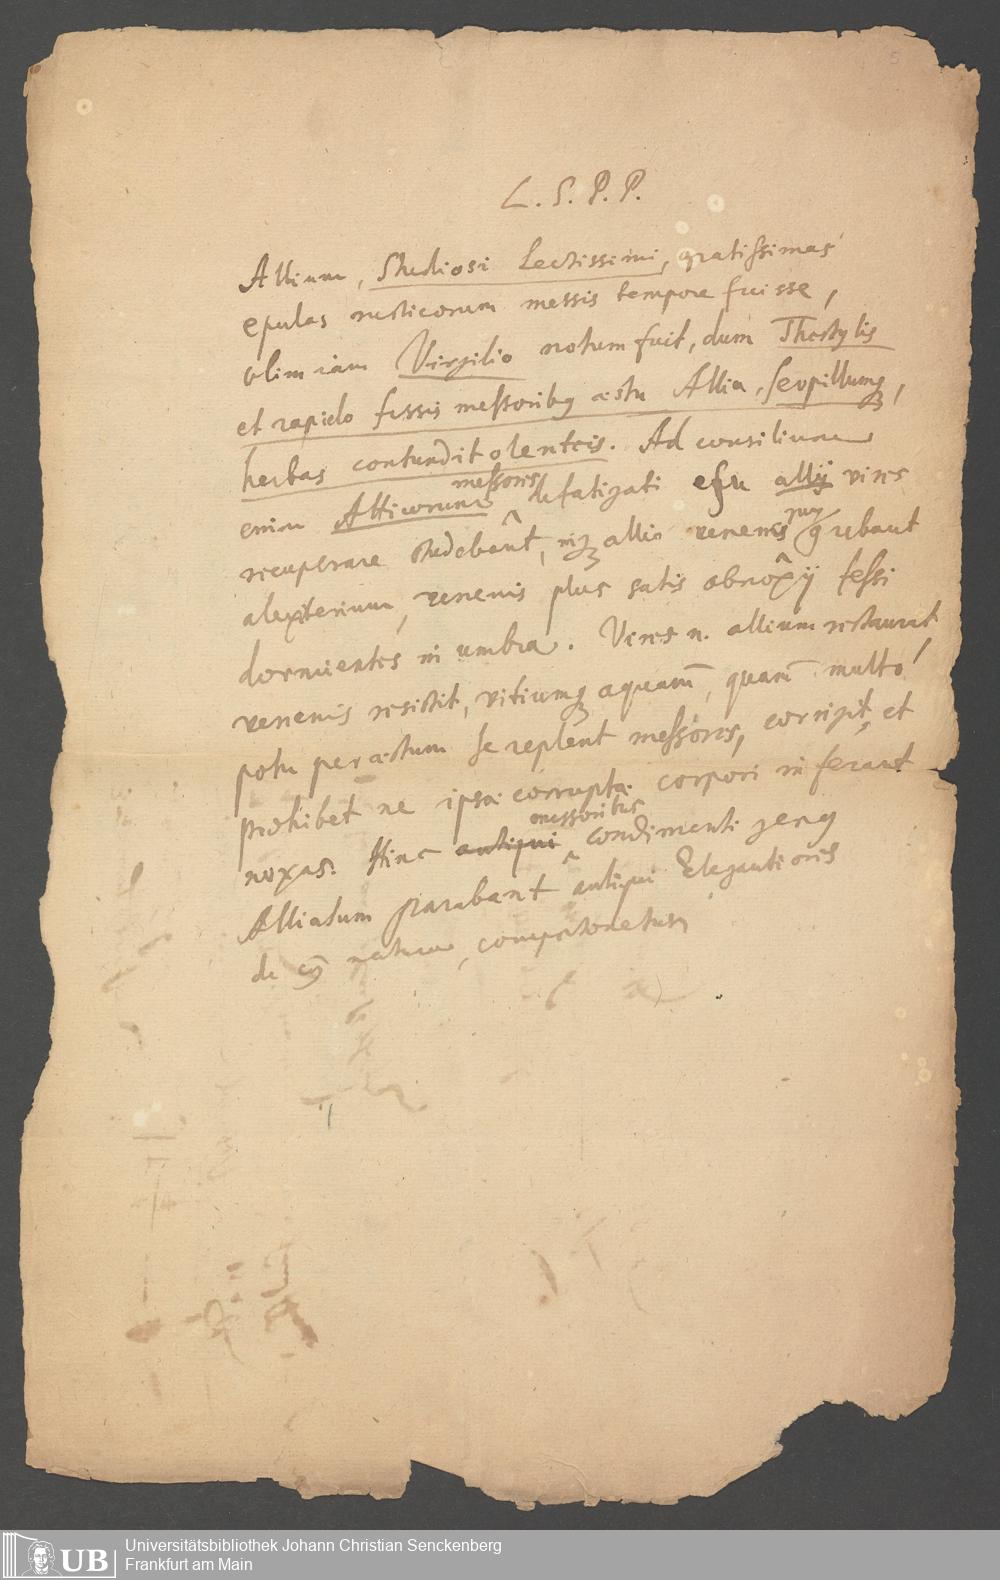 L. S. P. P.
Allium, Studiosi Lectissimi, gratissimas
epulas rusticorum messis tempore fuisse,
olim iam Virgilio notum fuit, dum Thestylis
et rapido fessis messoribus æstu Allia, serpillumque,
herbas contundit olenteis. Ad consilium
enim Atticorum messores defatigati esu allij vires
recuperare studebant, inque allio venenis
alexiterium, venenis plus satis obnoxij fessi
dormientes in umbra. Vires n. allium restaurat
venenis resistit, vitiumque aquarum, quarum multo
potu per æstum se replent messores, corrigit, et
prohibet ne ipsæ corruptæ corpori inferant
noxas. Hinc antiqui messoribus condimenti genus
Alliatum parabant antiqui Elegantioris
de cuius natura,
5
UB
Universitätsbibliothek Johann Christian Senckenberg
Frankfurt am Main